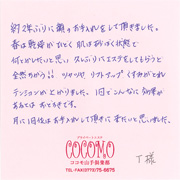 約2年ぶりに顔のお手入れをして頂きました。
春は乾燥がひどく肌はボロボロ状態で
何とかしたいと思い 久しぶりにエステをしてもらうと
全然ちがう!! ツヤツヤ リフトアップ くすみがとれ
テンションの上がりました。1回でこんなに効果が
あるとは おどろきです。
月に1回はお手入れして頂きに来たいと思いました。
プライベートエステ
COCOMO
ココモ山手倶楽部
TEL・FAX(0773)75-6675
T様